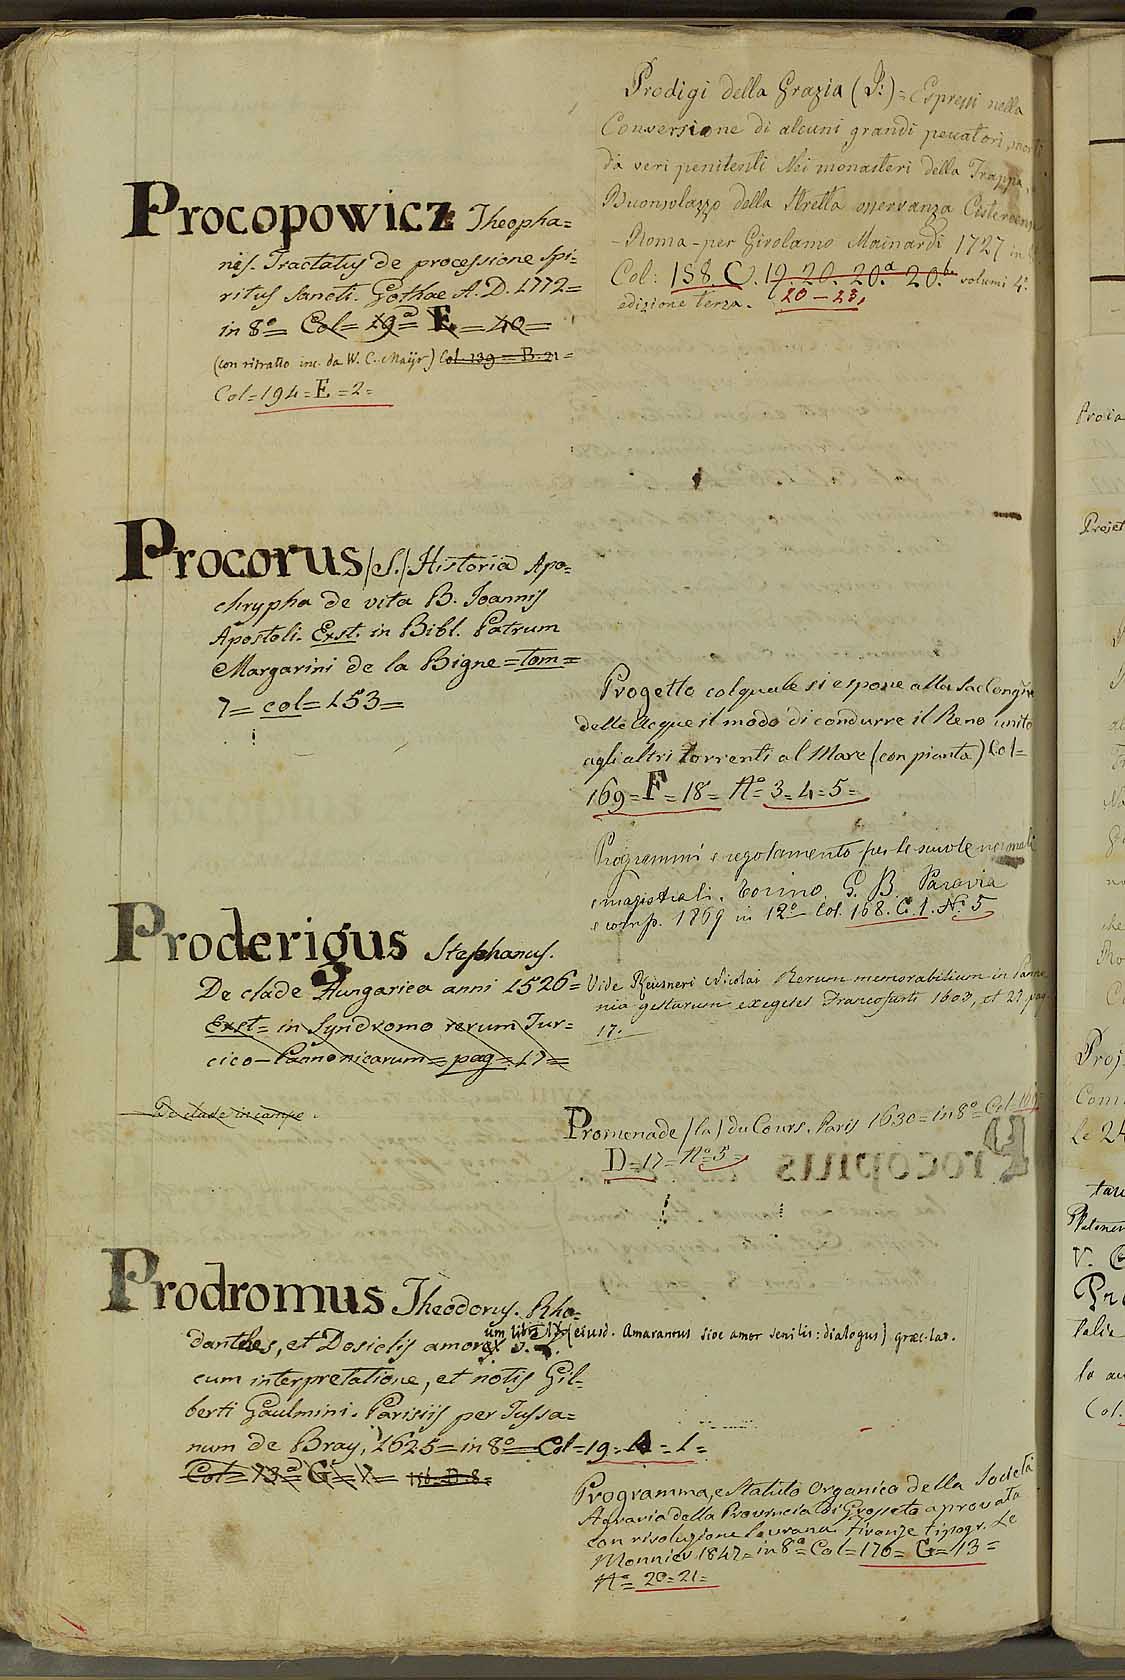 Procopowicz Theopha=
nis. Tractatus de processione Spi=
ritus Sancti. Gothae A. D. 1772=
in 8º= Col= 29ª= E. = 40=
(con ritratto inc. da W. C. Mayr) Col. 139 = B. 21 =
Col=194=E=2=
Procorus /S./ Historia Apo=
chrypha de vita B. Joannis
Apostoli. Exst. in Bibl. Patrum
Margarini de la Bigne=tom=
7= col= 153=
Proderigus Stephanus.
De clade Hungarica anni 1526=
Exst= in Syndromo rerum Tur=
cico-Pannonicarum= pag= 17=
De clade in campo.
Prodromus Theodorus. Rho=
danthes, et Dosiclis amorum libri IX (eiusd. Amarantus sive amor senilis: dialogus) græc-lat.
cum interpretatione, et notis Gil=
berti Gaulmini. Parisiis per Tussa=
num de Bray, 1625= in 8º= Col=19=A=1=
Col= 73ª G= 7= 156. D. 8=
Prodigi della Grazia (I:)= Espressi nella
Conversione di alcuni grandi peccatori, morti
da veri penitenti Nei monasteri della Trappa, e
Buonsolazzo della Stretta osservanza Cisterciense
-Roma-per Girolamo Mainardi 1727 in
Col: 158. C. 19. 20. 20.ª 20.b volumi 4.
edizione terza. 20-23.
Progetto col quale si espone alla
delle Acque il modo di condurre il Reno unito
agli altri torrenti al Mare (con pianta) Col=
169=F=18= Nº= 3=4=5=
Programmi e regolamento per le scuole normali
e magistrali. Torino G. B. Paravia
e comp. 1869 in 12º Col. 168. C. 1. Nº 5
Vide Reusneri Nicolai Rerum memorabilium in Panno
nia gestarum exegeses Francofurti 1603, et 27. pag
17.
Promenade /la/ du Cours. Paris 1630= in 8º= Col=
D=17= Nº=5=
Programma, e Statuto Organico della Società
Agraria della Provincia di Grosseto aprovata
con risoluzione sovrana. Firenze tipogr. Le
Monnier 1847= in 8º= Col=176= G=13=
Nº= 20=21=